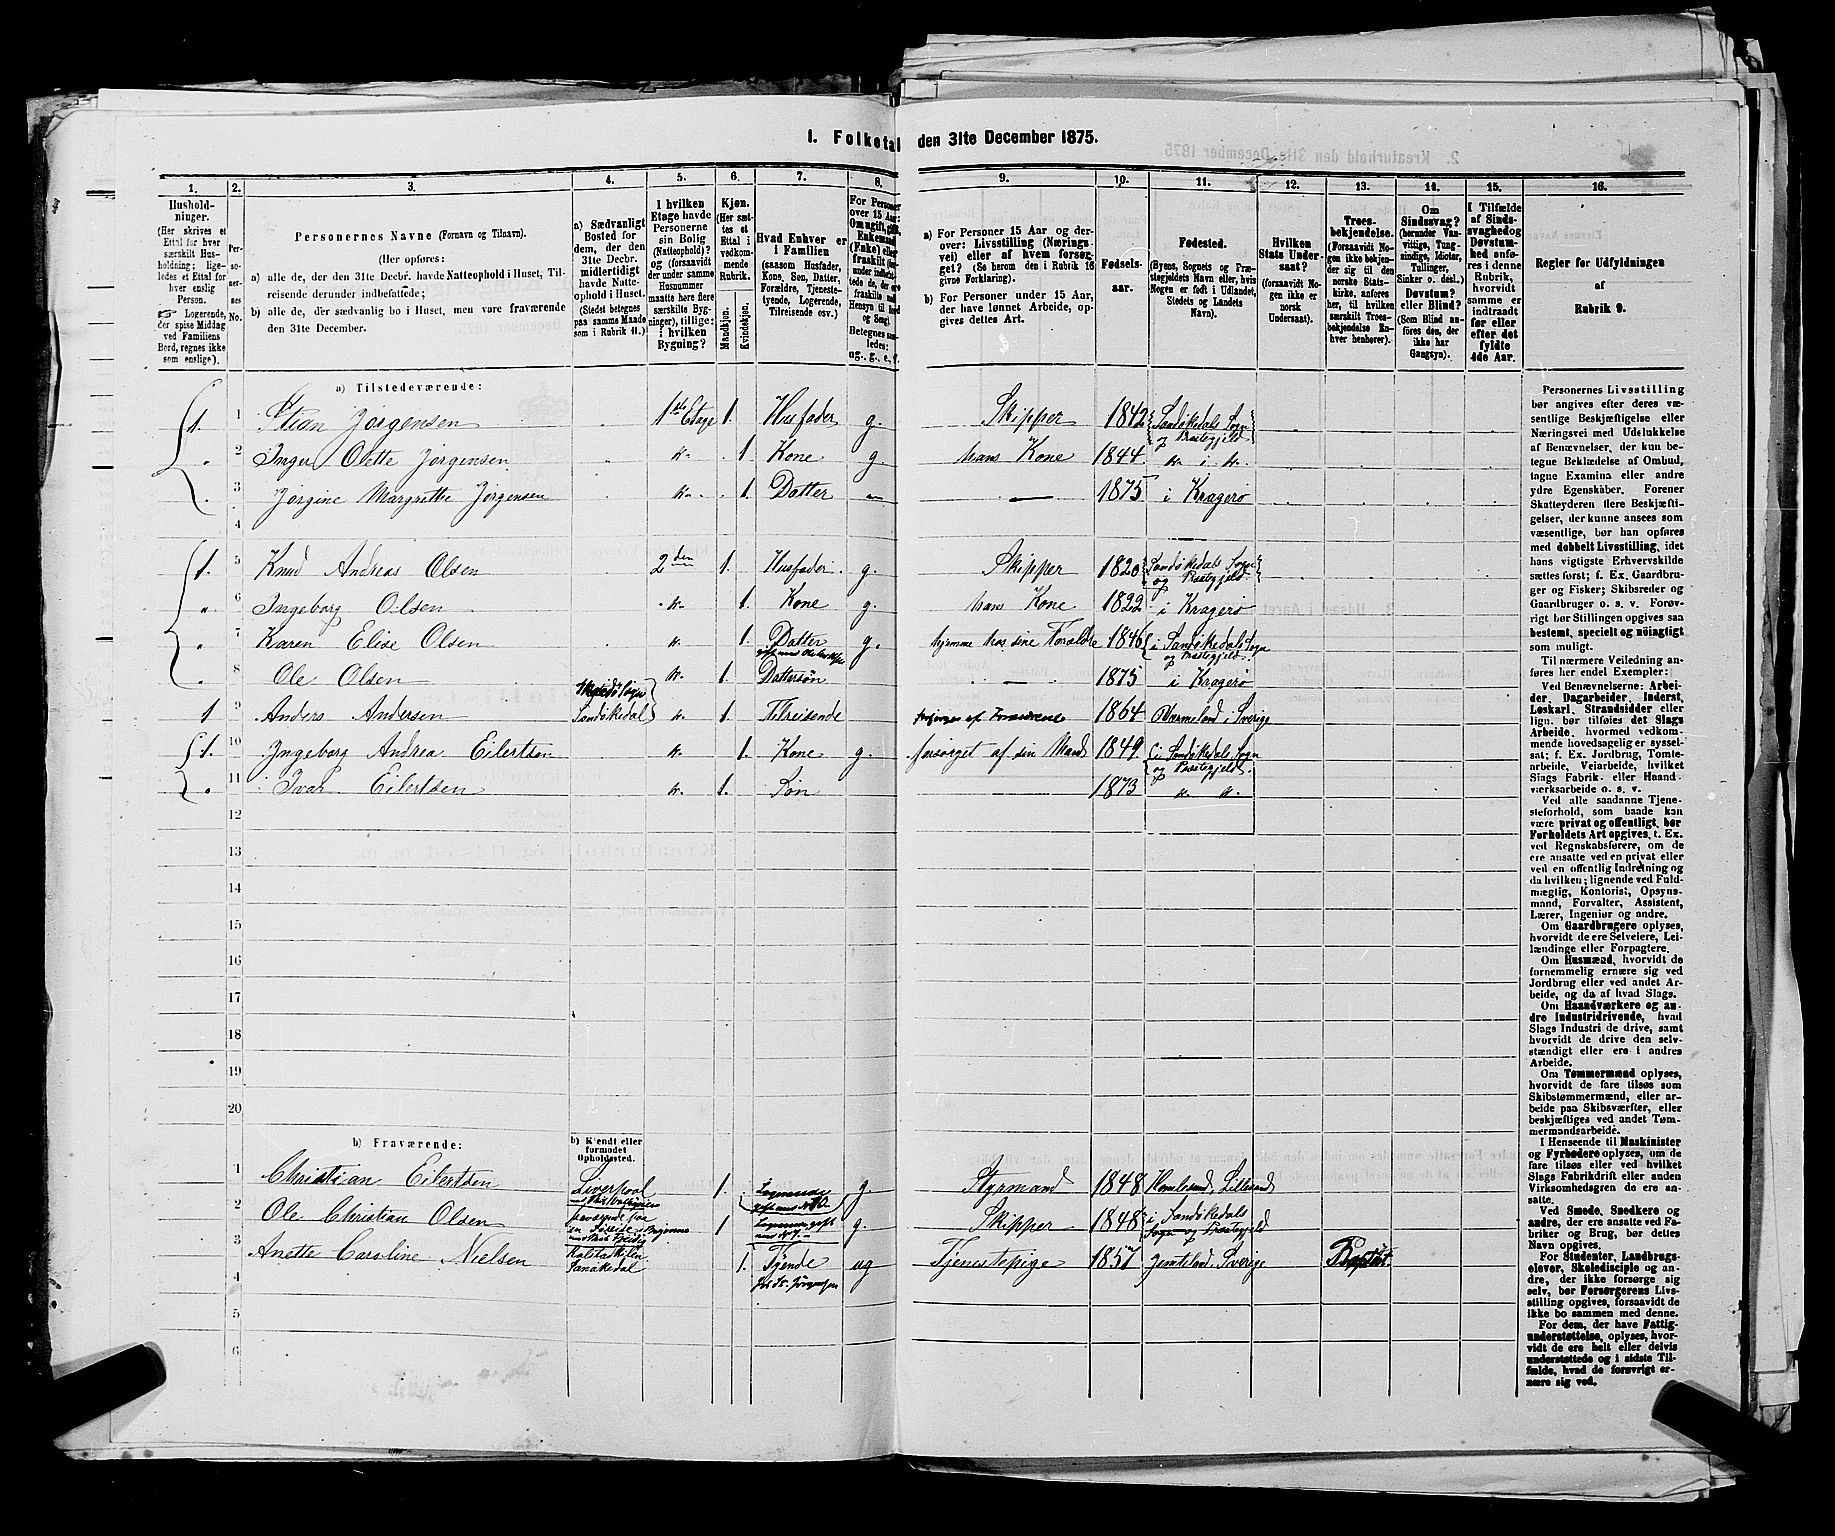 1. Folketal den 31te December 1875.
1. 2. 3. 4. 5. 6. 7. 8. 9. 10. 11. 12. 13. 14. 15. 16.
Hushold-
ninger.
(Her skrives et
Ettal for hver
særskilt Hus-
holdning; lige-
ledes et Ettal for
hver enslig
Person.
Logerende,
der spise Middag
ved Familiens
Bord, regnes ikke
som enslige).
Per-
so-
ner-
nes
No.
Personernes Navne (Fornavn og Tilnavn).
(Her opføres:
a) alle de, der den 31te Decbr. havde Natteophold i Huset, Til-
reisende derunder indbefattede;
b) alle de, der sædvanlig bo i Huset, men vare fraværende
den 31te December.
a) Sædvanligt
Bosted for
dem, der den
31te Decbr.
midlertidigt
havde Natte-
ophold i Huset.
(Stedet betegnes
paa samme Maade
som i Rubrik 11.)
I hvilken
Etage havde
Personerne
sin Bolig
(Natteophold)?
og (forsaavidt
der under samme
Husnummer
maatte høre flere
særskilte Byg-
ninger), tillige:
i hvilken
Bygning?
Kjøn.
(Her sæt-
tes et
Ettal i
vedkom-
mende
Rubrik.
Mandkjøn.
Kvindekjøn.
Hvad Enhver er
i Familien
(saasom Husfader,
Kone, Søn, Datter,
Forældre, Tjeneste-
tyende, Logerende,
Tilreisende osv.)
For Personer
over 15 Aar:
Om ugift, gift,
Enkemand
(Enke) eller
fraskilt
Betegnes saa-
ledes:
ug., g., e., f.
a) For Personer 15 Aar og der-
over: Livsstilling (Nærings-
vei) eller af hvem forsør-
get? (Se herom den i Rubrik 16
givne Forklaring).
b) For Personer under 15 Aar,
der have lønnet Arbeide, op-
gives dettes Art.
Fødsels-
aar.
Fødested.
(Byens, Sognets og Præ-
stegjeldets Navn, eller, hvis
Nogen er født i Udlandet,
Stedets og Landets
Navn).
Hvilken
Stats Under-
saat?
(forsaavidt No-
gen ikke er
norsk
Undersaat).
Troes-
bekjendelse.
(Forsaavidt No-
gen ikke bekjen-
der sig til den
norske Stats-
kirke, anføres
her, til hvilken
særskilt Troes-
bekjendelse En-
hver henhører).
Om
Sindssvag?
(herunder Van-
vittige, Tung-
sindige, Idioter,
Tullinger,
Sinker o. desl.).
Døvstum?
eller Blind?
(Som Blind an-
føres den, der
ikke har
Gangsyn).
I Tilfælde
af Sinds-
svaghed og
Døvstum-
hed anfø-
res i denne
Rubrik,
hvorvidt
samme er
indtraadt
før eller
efter det
fyldte
4de Aar.
Regler for Udfyldningen
af
Rubrik 9.
a) Tilstedeværende:
1. 1 Stian Jørgensen 1ste Etage 1. Husfader g. Skipper 1842 Sandøkedals Sogn
og Præstegjeld
2 Inger Olette Jørgensen 1. Kone g. hans Kone 1844 i
3 Jørgine Margrethe Jørgensen 1. Datter 1875 i Kragerø
4
1. 5 Knud Andreas Olsen 2den 1. Husfader g. Skipper 1820 Sandøkedals Sogn
og Præstegjeld
6 Ingeborg Olsen 1. Kone g. hans Kone 1822 i Kragerø
7 Karen Elise Olsen 1. Datter g. hjemme hos sine Forældre 1846 i Sandøkedals Sogn
og Præstegjeld.
8 Ole Olsen 1. Dattersøn 1875 i Kragerø
Sogn
1 9 Anders Andersen Sandøkedal 1. Tilreisende af Forældrene 1864 Wærmeland i Sverige
1. 10 Ingeborg Andrea Eilertsen 1. Kone g. forsørget af sin Mand 1849 i Sandøkedals Sogn
og Præstegjeld.
11 Ivar Eilertsen 1. Søn 1873
12
13
14
15
16
17
18
19
20
b) Fraværende:
b) Kjendt eller
formodet
Opholdssted.
1 Christian Eilertsen Liverpool 1. Logerende g. Styrmand 1848 Lillesand
2 Ole Christian Olsen 1 g. Skipper 1848 i Sandøkedals
Sogn og Præstegjeld
3 Anette Caroline Nielsen 1. Tjende ug Tjenestepige 1857 Jemtland, Sverige Baptist.
Sanøkedal
4
5
6
Personernes Livsstilling
bør angives efter deres væ-
sentlige Beskjæftigelse eller
Næringsvei med Udelukkelse
af Benævnelser, der kun be-
tegne Beklædelse af Ombud,
tagne Examina eller andre
ydre Egenskaber. Forener
Skatteyderen flere Beskjæfti-
gelser, der kunne ansees som
væsentlige, bør han opføres
med dobbelt Livsstilling, idet
hans vigtigste Erhvervskilde
sættes først; f. Ex. Gaardbru-
ger og Fisker; Skibsreder og
Gaardbruger o. s. v. Forøv-
rigt bør Stillingen opgives saa
bestemt, specielt og nöiagtigt
som muligt.
Til nærmere Veiledning an-
føres her endel Exempler:
Ved Benævnelserne: Arbei-
der, Dagarbeider, Inderst,
Løskarl, Strandsidder eller
lign. bør tilføies det Slags
Arbeide, hvormed vedkom-
mende hovedsagelig er syssel-
sat; f. Ex. Jordbrug, Tomte-
arbeide, Veiarbeide, hvilket
Slags Fabrik- eller Haand-
værksarbeide o. s. v.
Ved alle saadanne Tjene-
steforhold, som baade kan
være privat og offentligt, bør
Forholdets Art opgives, t. Ex.
ved Regnskabsførere, om de
ere ansatte ved en privat eller
ved en offentlig Indretning og
da hvilken; lignende ved Fuld-
mægtig, Kontorist, Opsyns-
mand, Forvalter, Assistent,
Lærer, Ingeniør og andre.
Om Gaardbrugere oplyses,
hvorvidt de ere Selveiere, Lei-
lændinge eller Forpagtere.
Om Husmænd, hvorvidt de
fornemmelig ernære sig ved
Jordbrug eller ved andet Ar-
beide, og da af hvad Slags.
Om Haandværkere og an-
dre Industridrivende, hvad
Slags Industri de drive, samt
hvorvidt de drive den selv-
stændigt eller ere i andres
Arbeide.
Om Tømmermænd oplyses,
hvorvidt de fare tilsøs som
Skibstømmermænd, eller ar-
beide paa Skibsværfter, eller
beskjæftiges ved andet Tøm-
mermandsarbeide.
I Henseende til Maskinister
og Fyrbødere oplyses, om de
fare tilsøs eller ved hvilket
Slags Fabrikdrift eller anden
Virksomhedsgren de ere an-
satte.
Ved Smede, Snedkere og
andre, der ere ansatte ved Fa-
briker og Brug, bør dettes
Navn opgives.
For Studenter, Landbrugs-
elever, Skoledisciple og an-
dre, der ikke forsørge sig
selv, bør Forsørgerens Livs-
stilling opgives, forsaavidt de
ikke bo sammen med denne.
For dem, der have Fattig-
understøttelse, oplyses, hvor-
vidt de ere helt eller delvis
understøttede og i sidste Til-
fælde, hvad de forøvrigt er-
nære sig ved.